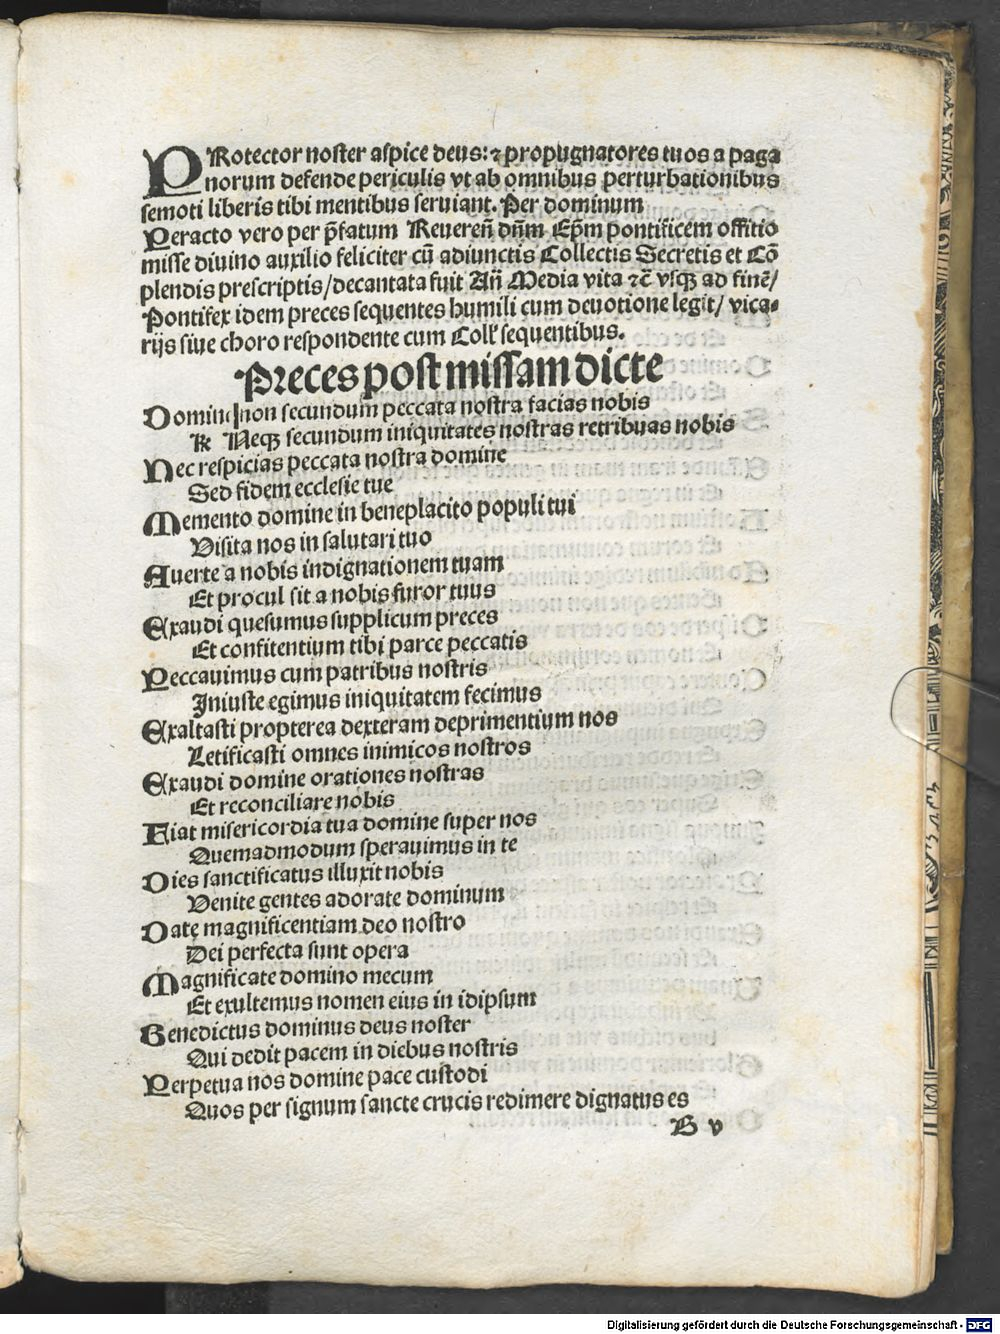 PRotector noster aspice deus: ⁊ propugnatores tuos a paga
norum defende periculis vt ab omnibus perturbationibus
semoti liberis tibi mentibus seruiant. Per dominum
Peracto vero per p̄fatum Reuereñ dñm Ep̄m pontificem offitio
misse diuino auxilio feliciter cū adiunctis Collectis Secretis et Cō
plendis prescriptis/decantata fuit Añ Media vita ⁊c̄ vsqꝫ ad finē/
Pontifex idem preces sequentes humili cum deuotione legit/ vica⸗
rijs siue choro respondente cum Coll' sequentibus.
Preces post missam dicte
Domine non secundum peccata nostra facias nobis
℟ Neqꝫ secundum iniquitates nostras retribuas nobis
Nec respicias peccata nostra domine
Sed fidem ecclesie tue
Memento domine in beneplacito populi tui
Visita nos in salutari tuo
Auerte a nobis indignationem tuam
Et procul sit a nobis furor tuus
Exaudi quesumus supplicum preces
Et confitentium tibi parce peccatis
Peccauimus cum patribus nostris
Iniuste egimus iniquitatem fecimus
Exaltasti propterea dexteram deprimentium nos
Letificasti omnes inimicos nostros
Exaudi domine orationes nostras
Et reconciliare nobis
Fiat misericordia tua domine super nos
Quemadmodum sperauimus in te
Dies sanctificatus illuxit nobis
Venite gentes adorate dominum
Date magnificentiam deo nostro
Dei perfecta sunt opera
Magnificate domino mecum
Et exultemus nomen eius in idipsum
Benedictus dominus deus noster
Qui dedit pacem in diebus nostris
Perpetua nos domine pace custodi
Quos per signum sancte crucis redimere dignatus es
B v
Digitalisierung gefördert durch die Deutsche Forschungsgemeinschaft - DFG